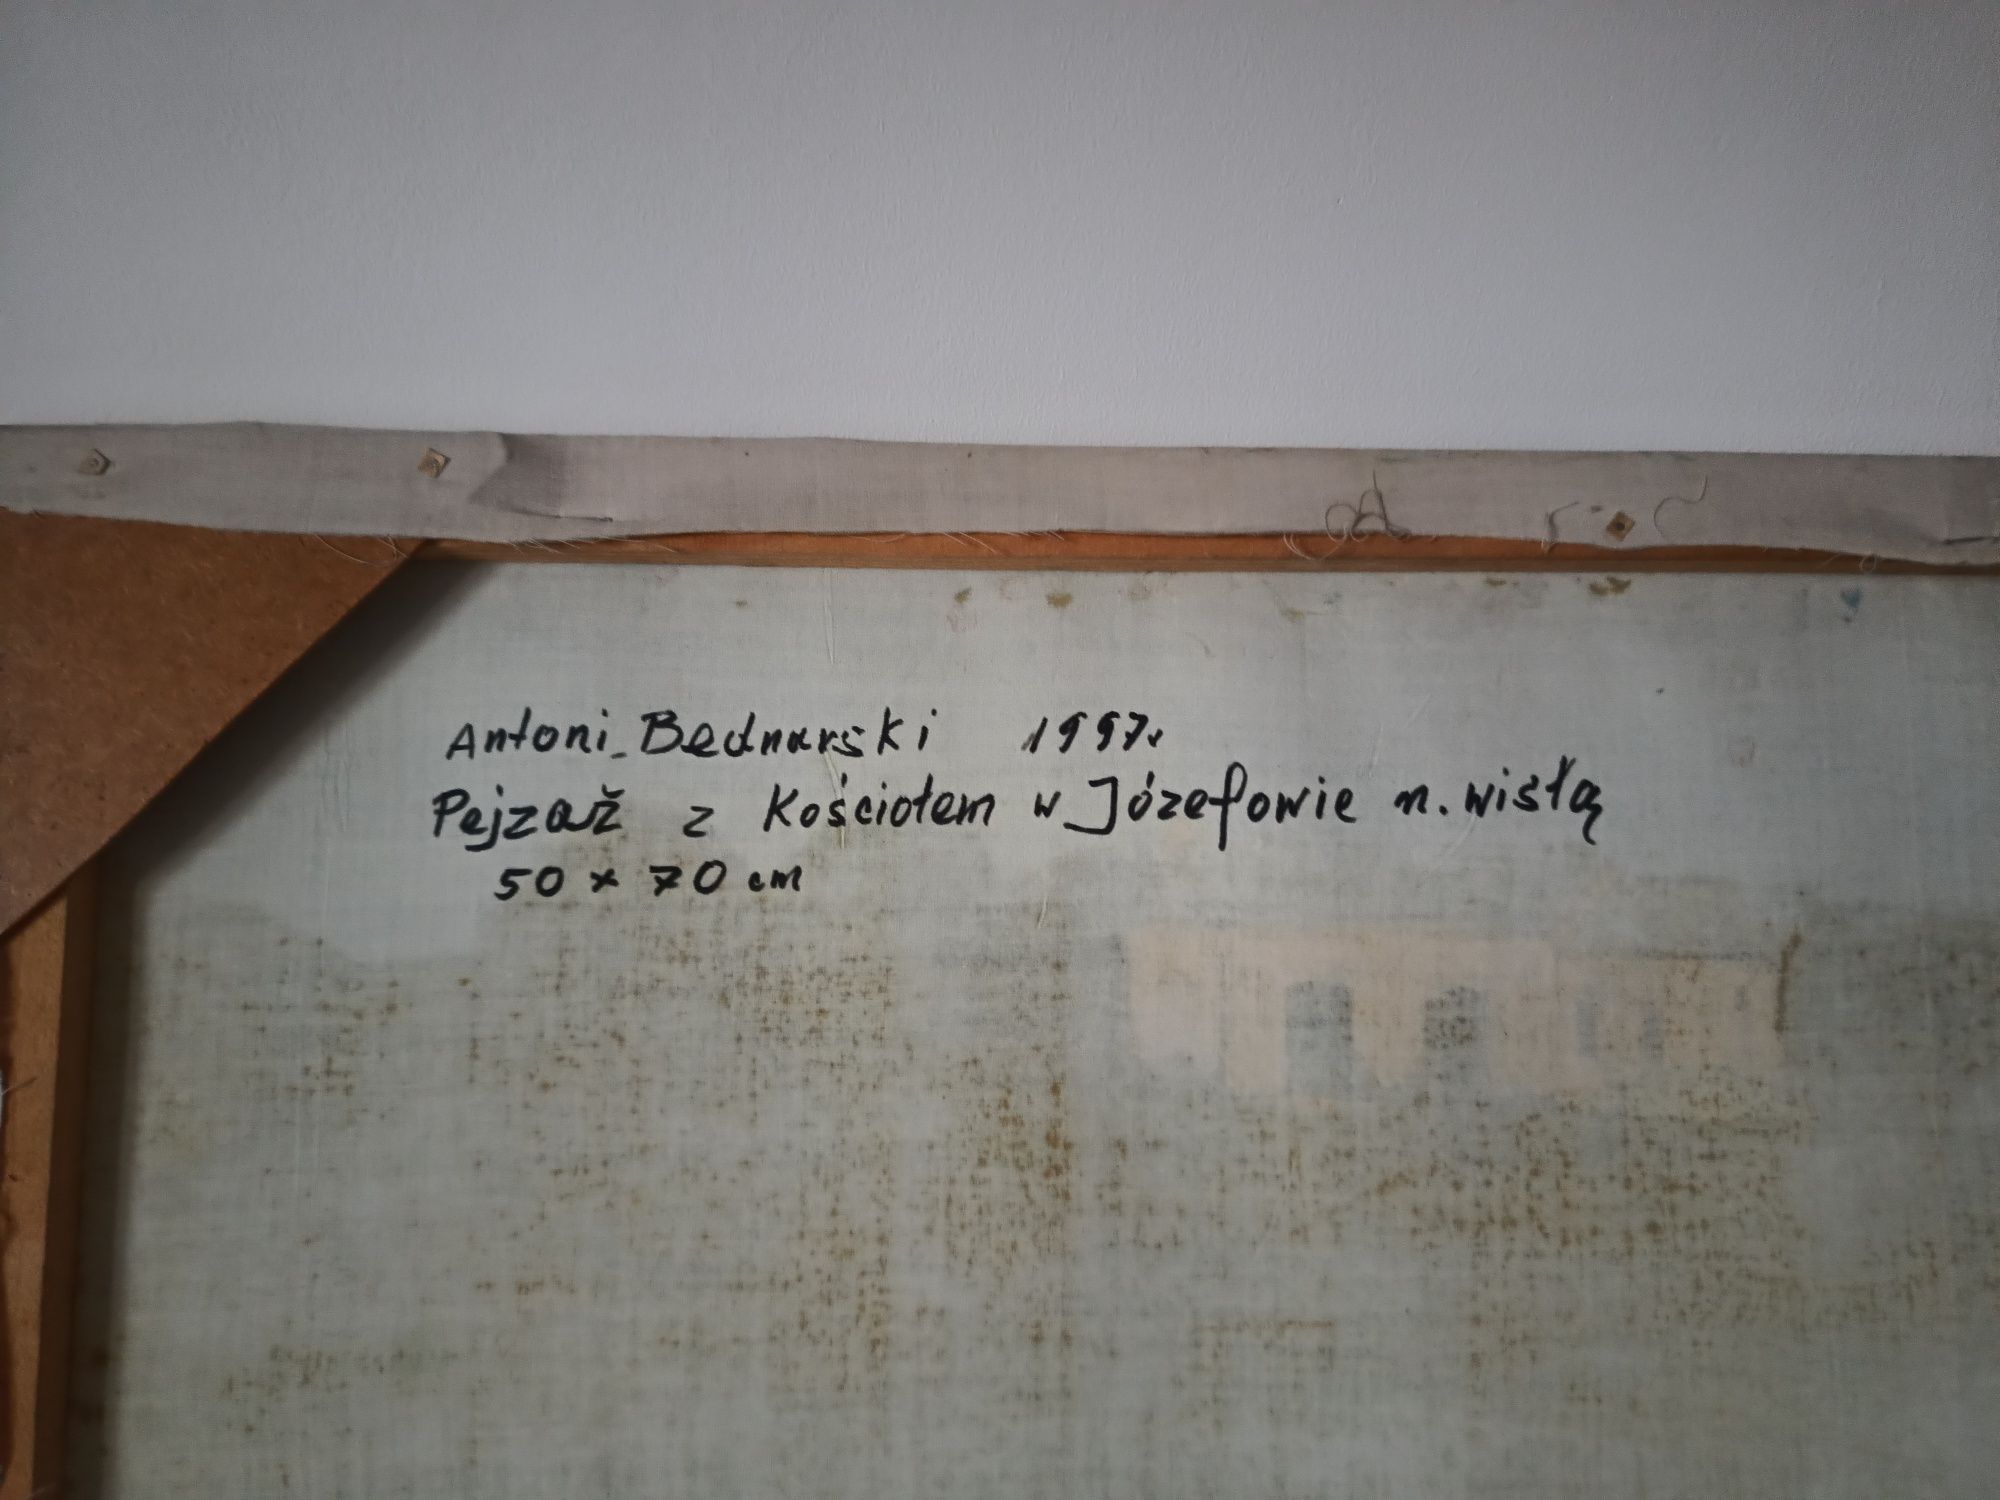 Antoni Bednarski 1997r
Pejzaż z Kościołem w Józefowie n. wisłą
50 x 70 cm